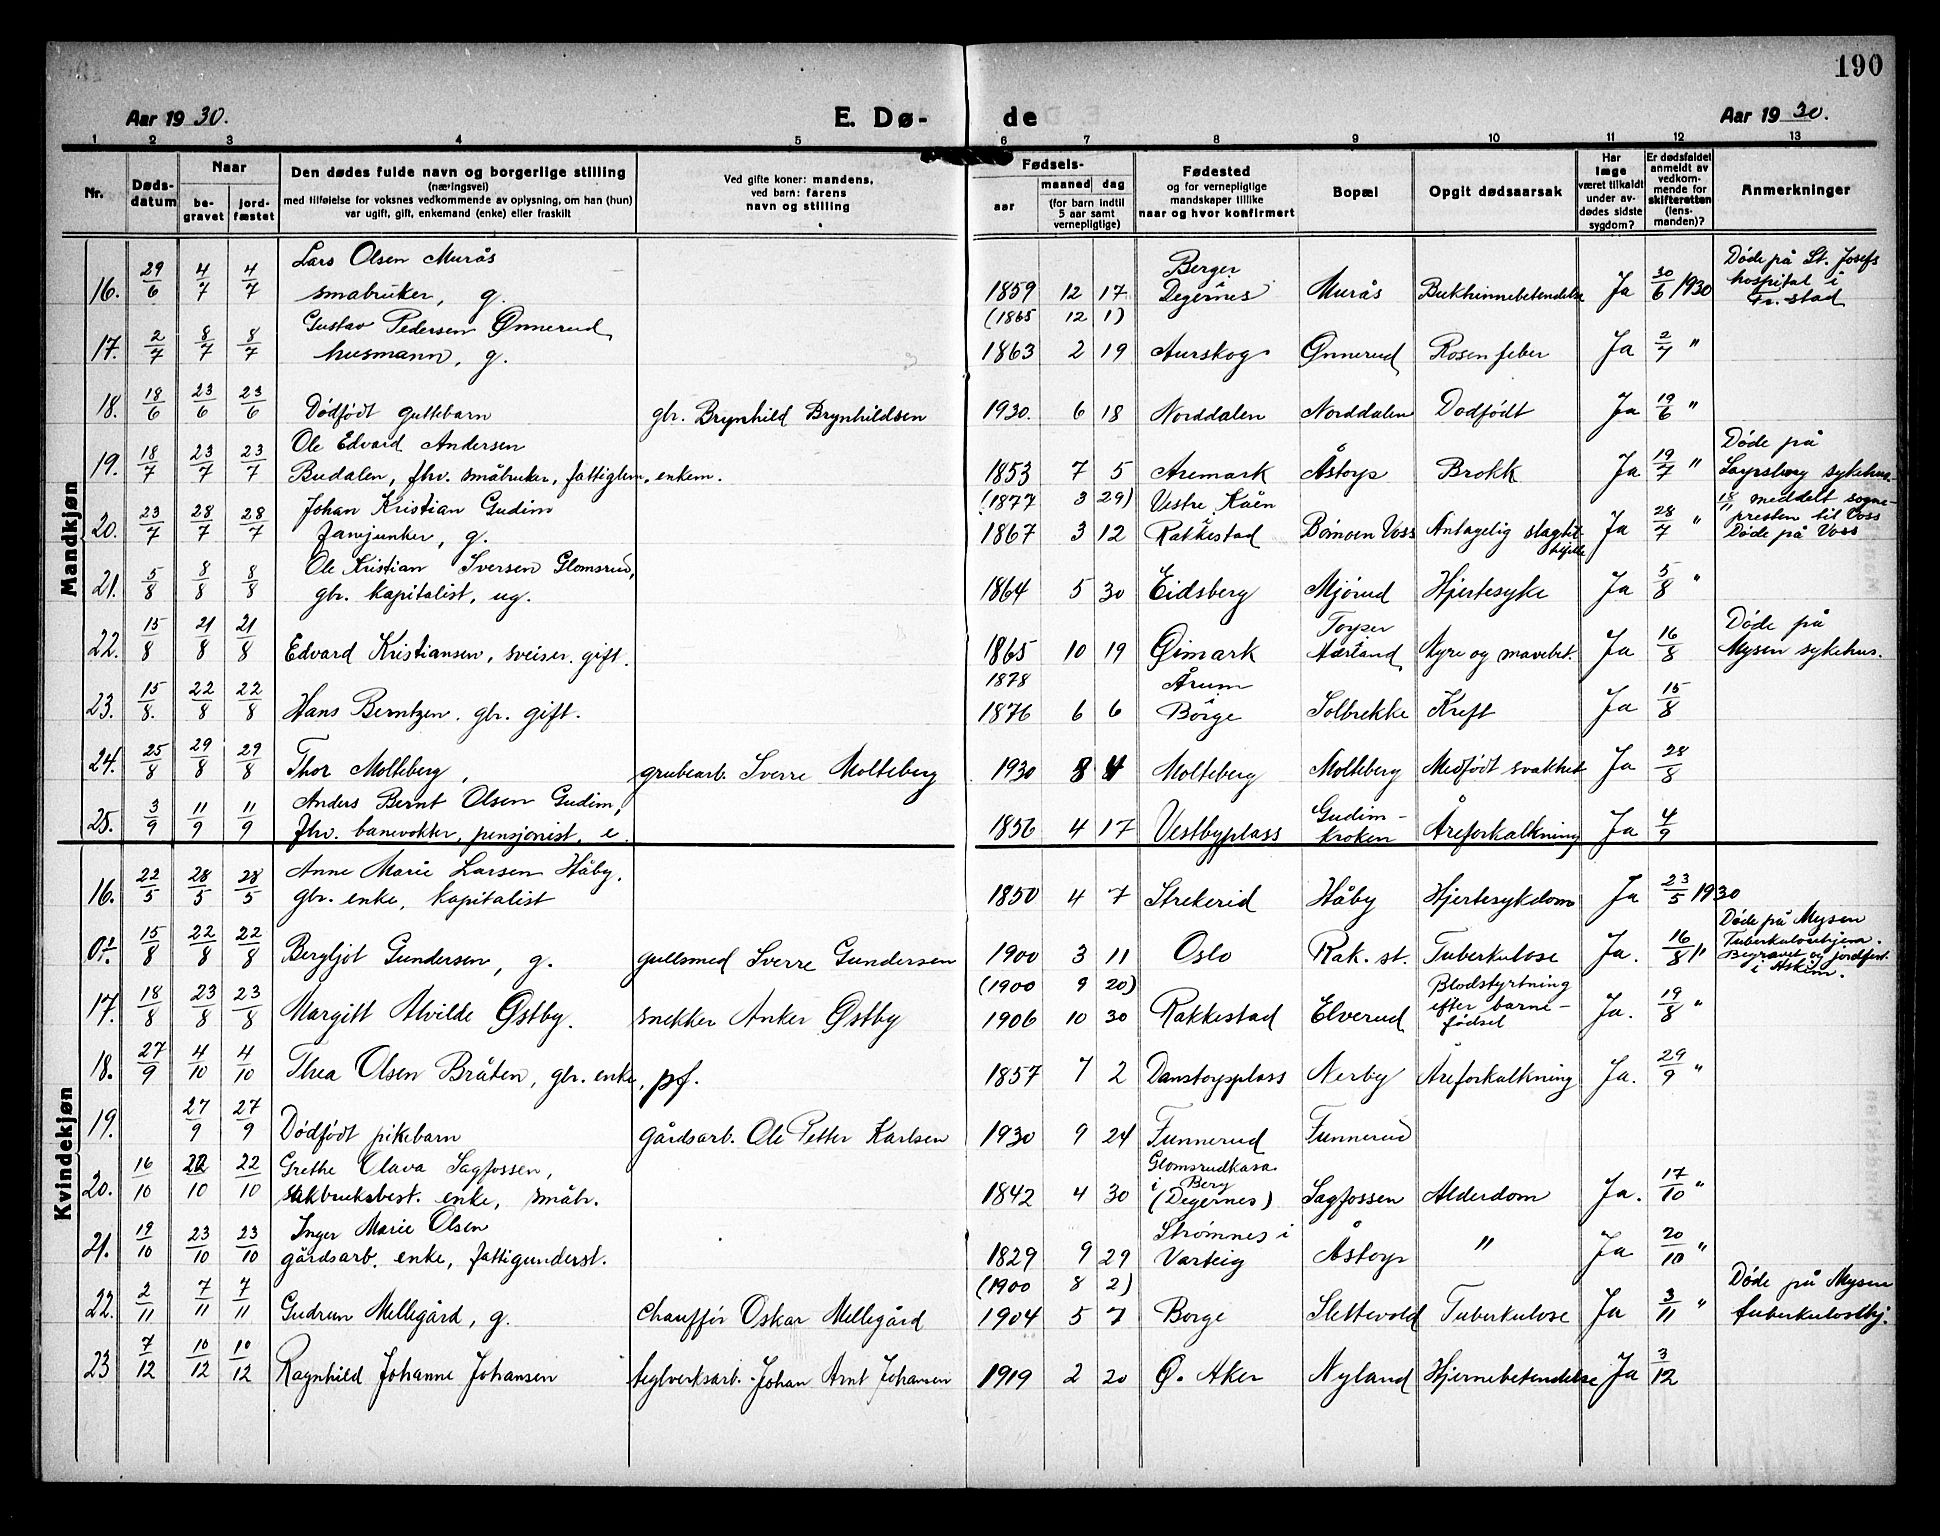 190
Aar 1930. E. Dø- de Aar 1930.
1 2 3 4 5 6 7 8 9 10 11 12 13
Nr. Døds-datum Naar be-gravet jord-fæstet Den dødes fulde navn og borgerlige stilling (næringsvei) med tilføielse for voksnes vedkommende av oplysning, om han (hun) var ugift, gift, enkemand (enke) eller fraskilt Ved gifte koner: mandens, ved barn: farens navn og stilling Fødsels- aar maaned dag (for barn indtil 5 aar samt vernepligtige) Fødested og for vernepligtige mandskaper tillike naar og hvor konfirmert Bopæl Opgit dødsaarsak Har læge været tilkaldt under av-dødes sidste sygdom? Er dødsfaldet anmeldt av vedkom-mende for skifteretten (lens-manden)? Anmerkninger
Mandkjøn
Lars Olsen Murås Berger Døde på St. Josefs
16. 29/6 4/7 4/7 småbruker, g. 1859 12 17 Degernes Murås Bukhinnebetendelse Ja 30/6 1930 hospital i Fr.stad
Gustav Pedersen Ønnerud (1865 12 1)
17. 2/7 8/7 8/7 husmann, g. 1863 2 19 Aurskog Ønnerud Rosenfeber Ja 2/7 "
18. 18/6 23/6 23/6 Dødfødt guttebarn gbr. Brynhild Brynhildsen 1930. 6 18 Norddalen Norddalen Dødfødt Ja 19/6 "
Ole Edvard Andersen Døde på
19. 18/7 23/7 23/7 Budalen, fhv. småbruker, fattiglem, enkem. 1853 7 5 Aremark Åstorp Brokk Ja 19/7 " sykehus.
Johan Kristian Gudim (1877 3 29) Vestre Kåen 18/11 meddelt sogne-
20. 23/7 28/7 28/7 fanejunker, g. 1867 3 12 Rakkestad Bømoen Voss Antagelig slagtilfelle Ja 28/7 " presten til Voss
Døde på Voss
Ole Kristian Iversen Glomsrud,
21. 5/8 8/8 8/8 gbr. kapitalist, ug. 1864 5 30 Eidsberg Mjørud Hjertesyke Ja 5/8 "
Torper Døde på
22. 15/8 21/8 21/8 Edvard Kristiansen, sveiser. gift. 1865 10 19 Øimark Hærland Nyre og mavebet. Ja 16/8 Mysen sykehus.
1878 Årum
23. 15/8. 22/8 22/8 Hans Berntzen. gbr. gift. 1876 6 6 Borge Solbrekke Kreft Ja 15/8
24. 25/8 29/8 29/8 Thor Molteberg, grubearb. Sverre Molteberg 1930 8 4 Molteberg Molteberg Medfødt svakhet Ja 28/8
Anders Bernt Olsen Gudim, Gudim-
25. 3/9 11/9 11/9 fhv. banevokter, pensjonist, e. 1856 4 17 Vestbyplass kroken Åreforkalkning Ja 4/9
Kvindekjøn
Anne Marie Larsen Håby,
16. 22/5 28/5 28/5 gbr. enke, kapitalist 1850 4 7 Strekerid Håby Hjertesykdom Ja 23/5 1930
Døde på Mysen
15/8 22/8 22/8 Bergljot Gundersen, g. gullsmed Sverre Gundersen 1900 3 11 Oslo Rak. st. Tuberkulose Ja. 16/8 " Tuberkulosehjem. Begravet og jordfest. i Askim.
(1900 9 20) Blodstyrtning
17. 18/8 23/8 23/8 Margitt Alvilde Østby. snekker Anker Østby 1906 10 30 Rakkestad Elverud efter barne-fødsel Ja. 19/8 "
18. 27/9 4/10 4/10 Thea Olsen Bråten, gbr. enke, pf. 1857 7 2 Danstorpplass Nerby Åreforkalkning Ja. 29/9 "
19. 27/9 27/9 Dødfødt pikebarn gårdsarb. Ole Petter Karlsen 1930 9 24 Funnerud Funnerud
Grethe Olava Sagfossen, Glomsrudkasa
20. 16/10 22/10 22/10 sakbruksbest. enke, småbr. 1842 4 30 i Berg (Degernes) Sagfossen Alderdom Ja. 17/10 "
Inger Marie Olsen Strømnes i
21. 19/10 23/10 23/10 gårdsarb. enke, fattigunderst. 1829 9 29 Varteig Åstorp " Ja 20/10 "
(1900 8 2) Døde på Mysen
22. 2/11 7/11 7/11 Gudrun Mellegård, g. chauffør Oskar Mellegård 1904 5 7 Borge Slettevold Tuberkulose Ja 3/11 " tuberkulosehj.
23 7/12 10/12 10/12 Ragnhild Johanne Johansen teglverksarb. Johan Arnt Johansen 1919 2 20 Ø. Aker Nyland Hjernebetendelse Ja 3/12